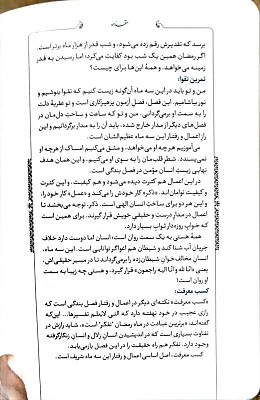 مقدمه
برسد که تقدیرش رقم زده می‌شود، و شب قدر از هزار ماه برتر است.
اگر رمضان همین یک شب بود کفایت می‌کرد؛ اما رسیدن به قدر
زمینه می‌خواهد. و همهٔ این‌ها برای چیست؟
تمرین تقوا:
من و تو باید در این سه ماه آن‌گونه زیست کنیم که تقوا بنوشیم و
نور بیاشامیم. این فصل، فصل آزمون پرهیزکاری است و تو عقربهٔ دلت
را به سمت او برمی‌گردانی. من و تو که ساعت و ساحت دل‌مان در
فصل‌های دیگر از مدار خارج شده، باید آن را به مدار برگردانیم و این
راز اعمال و رفتار این سه ماه عظیم‌الشان است.
می‌آموزیم هر چه او می‌خواهد، و مشق می‌کنیم امساک از هرچه او
نمی‌پسندد. شطر قلب‌مان را به سوی او می‌کنیم. و این همان هدف
نهایی زیستِ انسان مؤمن در فصل بندگی است.
در این اعمال هم کثرت دیده می‌شود و هم کیفیت. و این کثرت
و کیفیت توأمان‌اند. «ذکر» کار خودش را می‌کند و «عمل» کار خود را،
و این هر دو برای ساخت انسان الهی است. ذکر، توجه می‌بخشد تا
اعمال در مدار درست و حقیقیِ خویش قرار گیرند. برای همین است
که خوابِ روزه‌دار ثواب بسیار دارد.
همهٔ هستی به یک سمت روان است؛ انسان اما دوست دارد خلاف
جریان آب شنا کند و شیطان هم اغواگر توانایی است. و این سه ماه،
انسان مخالف‌خوانِ شیطان‌زده را برمی‌گرداند تا در مسیر حقیقی‌اش،
یعنی «انا لله و انا الیه راجعون» قرار گیرد. و هستی چه زیبا به سمت
او روان است!
کسب معرفت:
«کسب معرفت» نکته‌ای دیگر در اعمال و رفتار فصل بندگی است که
رازی عجیب در خود نهفته دارد که البتی لایعلم تفسیرها... این‌که
گفته‌اند: «برترین عبادت در ماه رمضان "تفکر" است»، شاید رازش در
تفاوت بسیاری است که در اندیشیدن انسانِ زلال و انسانِ زنگارگرفته
وجود دارد. تفکر هم راه حقیقت را در این فصل بازمی‌یابد.
کسب معرفت، اصل اساسی اعمال و رفتار این سه ماه شریف است.